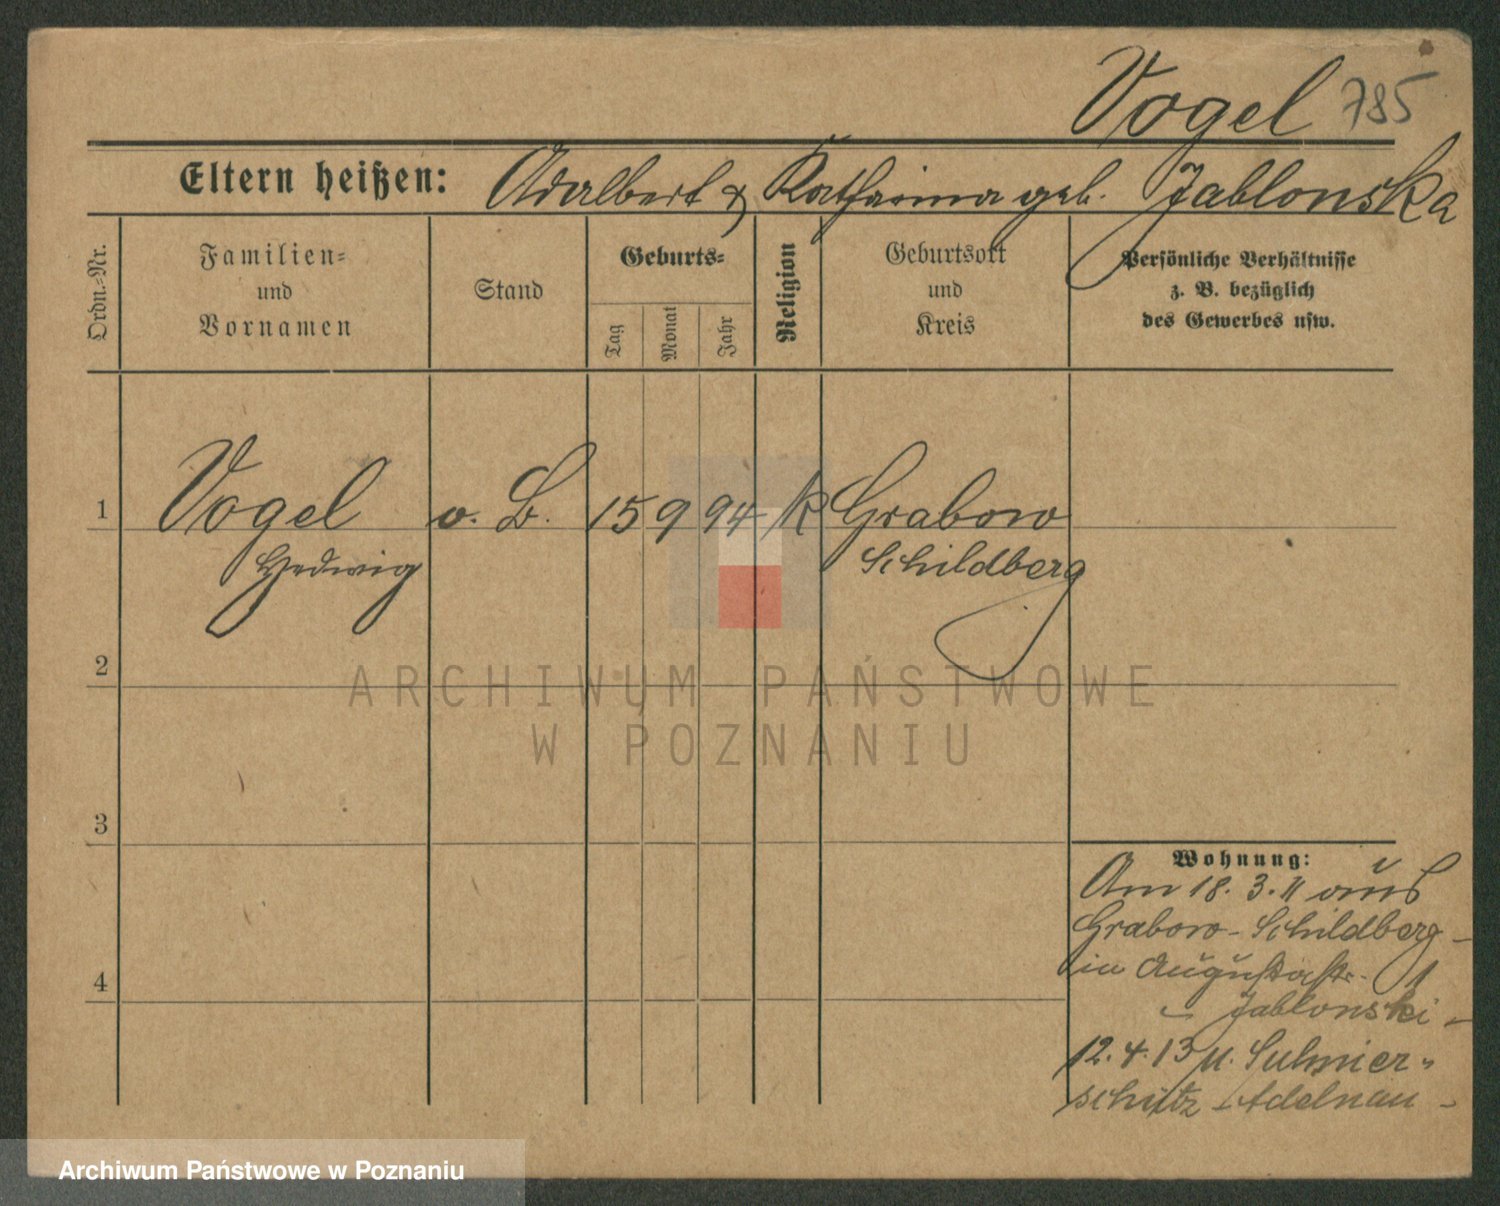 Vogel 785
Eltern heißen: Adalbert & Katharina geb. Jablonska
Ordn.-Nr.
Familien-
und
Vornamen
Stand
Geburts-
Tag
Monat
Jahr
Religion
Geburtsort
und
Kreis
Persönliche Verhältnisse
z. B. bezüglich
des Gewerbes usw.
1 Vogel o. B. 15 9 94 k Grabow
Hedwig Schildberg
2
3
4
Wohnung:
Am 18. 3. 11 aus
Grabow - Schildberg -
in Augustastr. 1
Jablonski -
12. 4. 13 n. Sulmier-
schütz - Adelnau -
ARCHIWUM PAŃSTWOWE
W POZNANIU
Archiwum Państwowe w Poznaniu